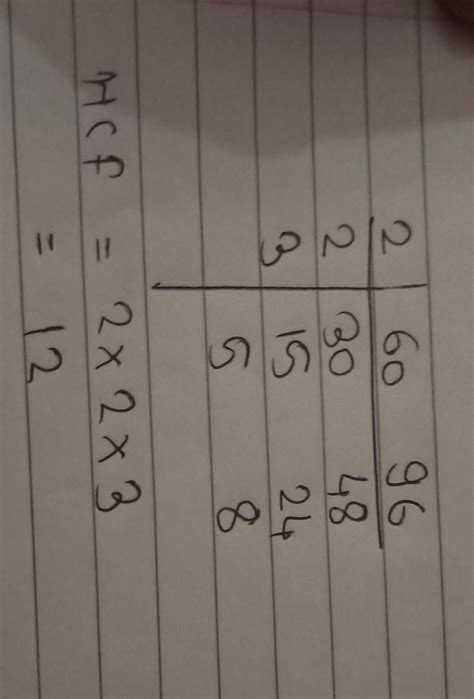 2 60 96
2 30 48
3 15 24
5 8
HCF = 2 x 2 x 3
= 12